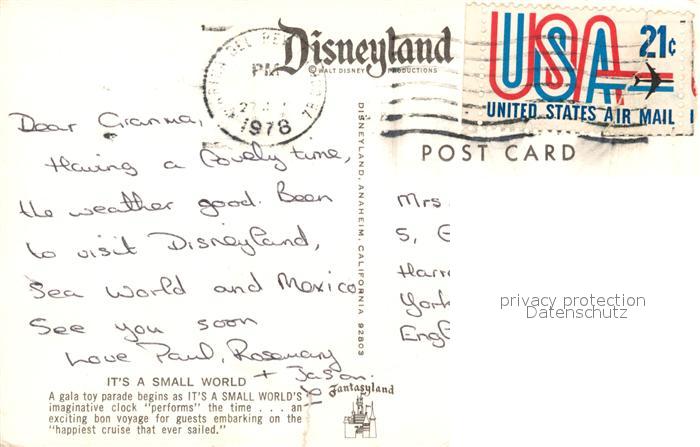 Disneyland
© WALT DISNEY PRODUCTIONS
PM
1978
USA 21¢
UNITED STATES AIR MAIL
POST CARD
Dear Granma,
Having a lovely time,
the weather good. Been
to visit Disneyland,
Sea World and Mexico
See you soon
Love Paul, Rosemary
+ Jason.
DISNEYLAND, ANAHEIM, CALIFORNIA 92803
Mrs.
5,
Harr
York
Engl
privacy protection
Datenschutz
IT'S A SMALL WORLD
A gala toy parade begins as IT'S A SMALL WORLD'S
imaginative clock "performs" the time . . . an
exciting bon voyage for guests embarking on the
"happiest cruise that ever sailed."
Fantasyland